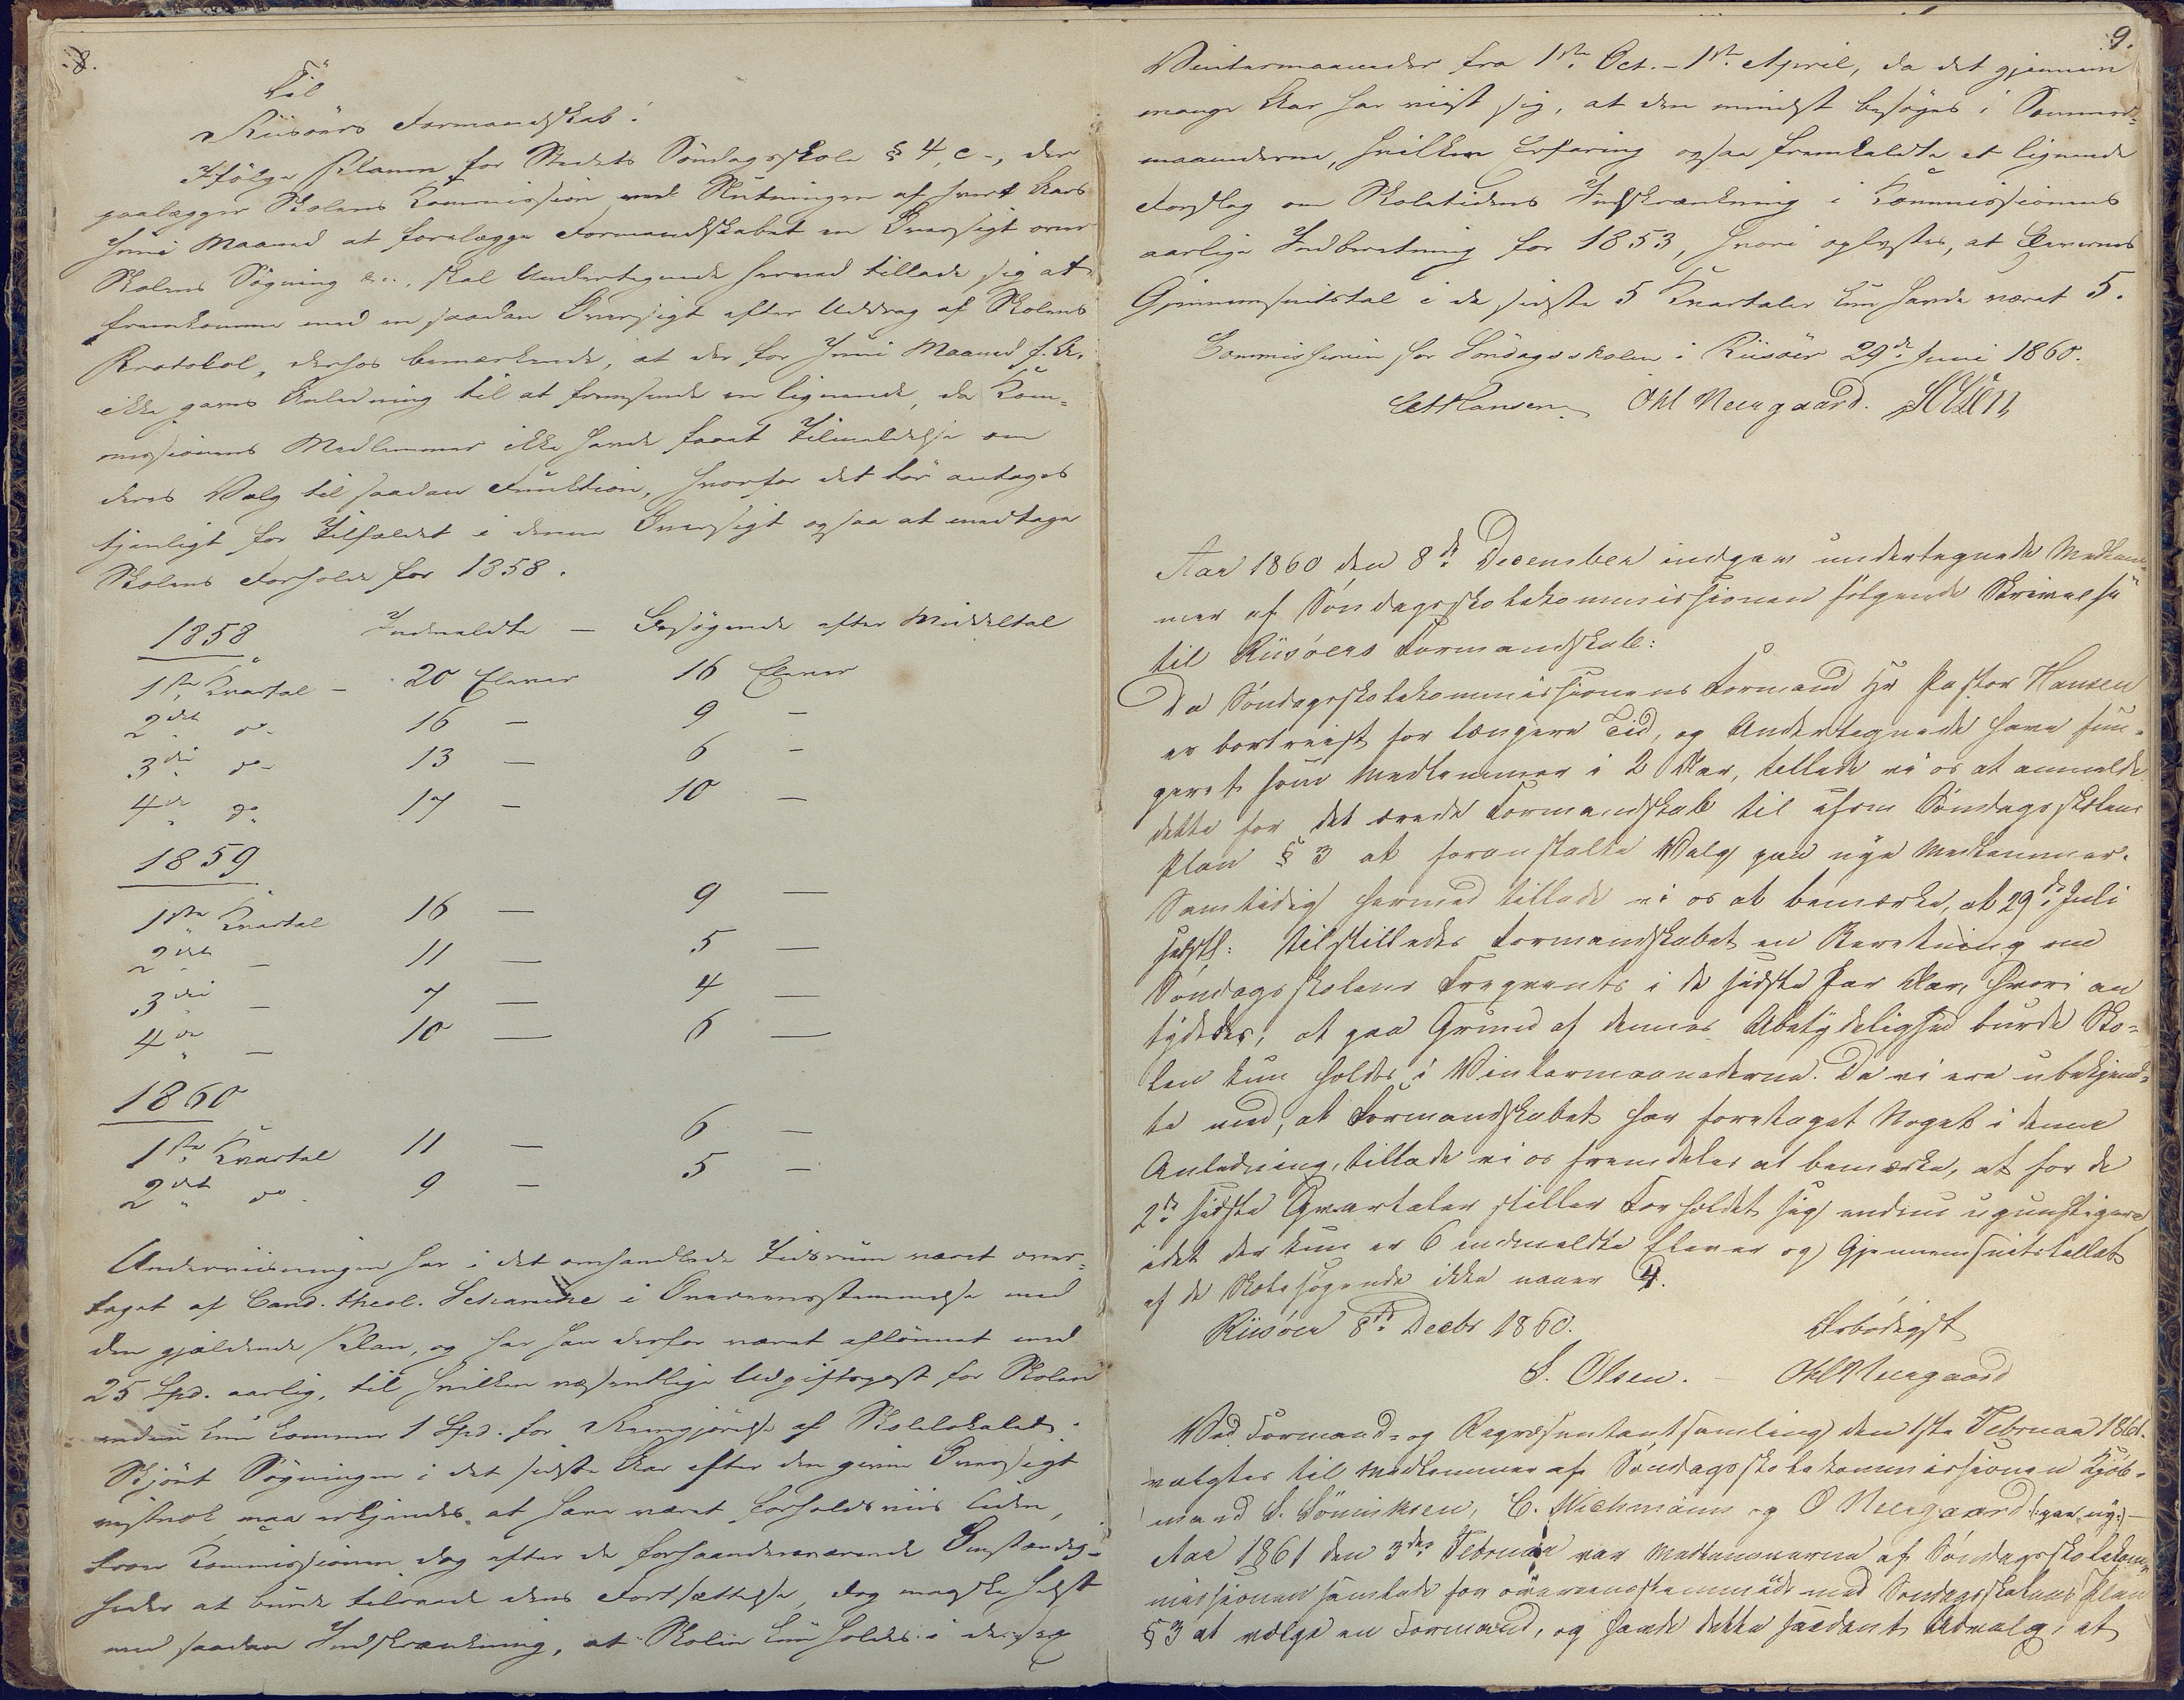 8.
Til
Riisöers Formandskab!
Ifölge Planen for Stedets Söndagsskole § 4, c-, der
paalægger Skolens Kommission ved Slutningen af hvert Aars
Juni Maaned at forelægge Formandskabet en Oversigt over
Skolens Sögning &c., skal Undertegnede herved tillade sig at
fremkomme med en saadan Oversigt efter Uddrag af Skolens
Protokol, derhos bemærkende, at der for Juni Maaned f. A.
ikke gaves Anledning til at fremsende en lignende, da Kom-
missionens Medlemmer ikke havde faaet Tilmeldelse om
deres Valg til saadan Funktion, hvorfor det tör antages
tjenligt for Tilfældet i denne Oversigt ogsaa at medtage
Skolens Forholde for 1858.
1858 Indmeldte — Besögende efter Middeltal
1ste Kvartal – 20 Elever 16 Elever
2det do 16 – 9 –
3die do 13 – 6 –
4de do 17 – 10 –
1859
1ste Kvartal 16 — 9 —
2det — 11 — 5 —
3die — 7 — 4 —
4de — 10 — 6 —
1860
1ste Kvartal 11 — 6 —
2det do 9 — 5 —
Underviisningen har i det omhandlede Tidsrum været over-
taget af Cand. theol. Schanche i Overeensstemmelse med
den gjældende Plan, og har han derfor været aflönnet med
25 Spd. aarlig, til hvilken væsentlige Udgiftspost for Skolen
endnu kun kommer 1 Spd. for Rengjörelse af Skolelokalet.
Skjönt Sögningen i det sidste Aar efter den givne Oversigt
vistnok maa erkjendes at have været forholdsviis liden,
troer Kommissionen dog efter de forhaandenværende Omstændig-
heder at burde tilraade dens Fortsættelse, dog maaske helst
med saadan Indskrænkning, at Skolen kun holdes i de sex
9.
Vintermaaneder fra 1ste Oct. – 1ste April, da det gjennem
mange Aar har viist sig, at den mindst besöges i Sommer-
maanederne, hvilken Erfaring ogsaa fremkaldte et lignende
Forslag om Skoletidens Indskrænkning i Kommissionens
aarlige Indberetning for 1853, hvori oplystes, at Elevernes
Gjennemsnitstal i de sidste 5 Kvartaler kun havde været 5.
Commissionen for Söndagsskolen i Riisöer 29de Juni 1860.
Hansen Ohl Neergaard. SOlsen
Aar 1860 den 8de December indgav undertegnede Medlem-
mer af Söndagsskolekommissionen fölgende Skrivelse
til Riisöers Formandskab:
Da Söndagsskolekommissionens Formand Hr Pastor Hansen
er bortreist for længere Tid, og Undertegnede have fun-
geret som Medlemmer i 2 Aar, tillade vi os at anmelde
dette for det ærede Formandskab til efter Söndagsskolens
Plan § 3 at foranstalte Valg paa nye Medlemmer.
Samtidig hermed tillade vi os at bemærke, at 29de Juli
sidstl: tilstilledes Formandskabet en Beretning om
Söndagsskolens Freqvents i de sidste Par Aar, hvori an
tydedes, at paa Grund af dennes Ubetydelighed burde Sko-
len kun holdes i Vintermaanederne. Da vi ere ubekjend-
te med, at Formandskabet har foretaget Noget i denne
Anledning, tillade vi os fremdeles at bemærke, at for de
2de sidste Qvartaler stiller Forholdet sig endnu ugunstigere
idet der kun er 6 indmeldte Elever og Gjennemsnitstallet
af de Skolesögende ikke naaer 4.
Riisöer 8de Decbr 1860. Ærbödigst
S. Olsen. — Ohl Neergaard
Ved Formand- og Repræsentantsamling den 1ste Februar 1861.
valgtes til Medlemmer af Söndagsskolekommissionen Kjöb-
mand S. Sönniksen, C. Wiehmann og O Neergaard (: paa ny:) —
Aar 1861 den 3die Februar var Medlemmerne af Söndagsskolekom-
missionen samlede for overeensstemmende med Söndagsskolens Plan
§ 3 at vælge en Formand, og havde dette saadant Udvalg, at